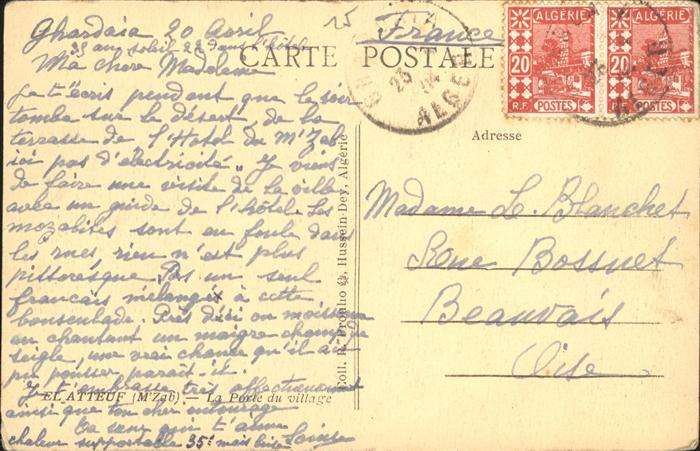 Ghardaia 20 Avril
35 au soleil 22 dans
Ma chere Madeleine
Je t'écris pendant que le soir
tombe sur le désert, de la
terrasse de l'Hotel du M'Zab
ici pas d'électricité. Je viens
de faire une visite de la ville
avec un guide de l'hôtel les
mozabites sont en foule dans
les rues, rien n'est plus
pittoresque. Pas un seul
français mélangé à cette
Près d'ici on moissonne
en chantant un maigre champ de
seigle, une vrai chance qu'il ait
pu pousser, parait-il.
Je t'embrasse très affectueusement
ainsi que ton cher entourage
Ta sœur qui t'aime
chaleur supportable 35° mais
EL ATTEUF (M'Zab) — La Porte du village
Coll. R. Prouho, Hussein-Dey, Algérie
CARTE POSTALE
25
ALGER
France
ALGÉRIE
20
20
R.F. POSTES
ALGÉRIE
20
20
R.F. POSTES
Adresse
Madame Le Blanchet
Rue Bossuet
Beauvais
Oise